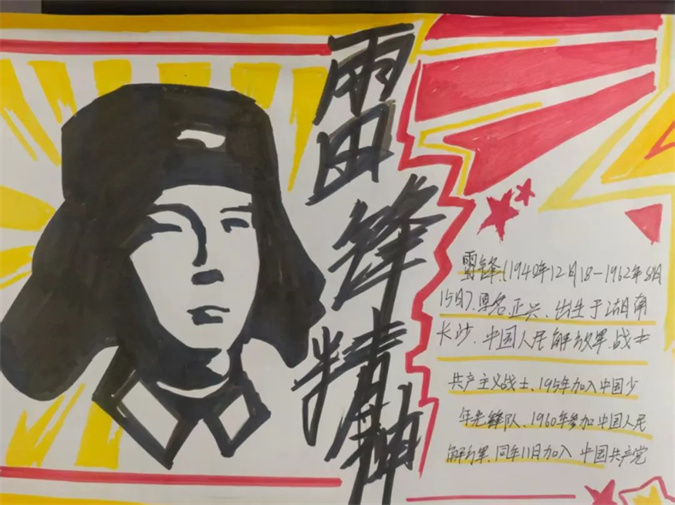 雷锋精神
雷锋(1940年12月18-1962年8月
15日).原名正兴.出生于湖南
长沙.中国人民解放军.战士
共产主义战士、195年加入中国少
年先锋队、1960年参加中国人民
解放军、同年11日加入 中国共产党